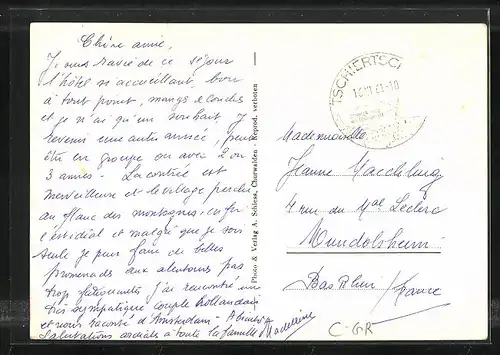 Chère amie,
Je suis ravie de ce séjour
l'hôtel si accueillant, bon
à tout point, mange
et je n'ai qu'un souhait J'y
revenir une autre année, peut
être en groupe ou avec 2 ou
3 amies - La contrée est
merveilleuse et le village perdu
au flanc des montagnes, enfin
c'est idéal et malgré que je sois
seule je puis faire de belles
promenades aux alentours pas
trop fatiguantes j'ai rencontré un
très sympatique couple hollandais
et nous raconté d'Amsterdam - A bientôt
Salutations à toute la famille Madeleine
Photo & Verlag A. Schloss, Churwalden - Reprod. verboten
TSCHIERTSCH
Mademoiselle
Jeanne
4 rue du Mal Leclerc
Mundolsheim
Bas Rhin/France
C-GR